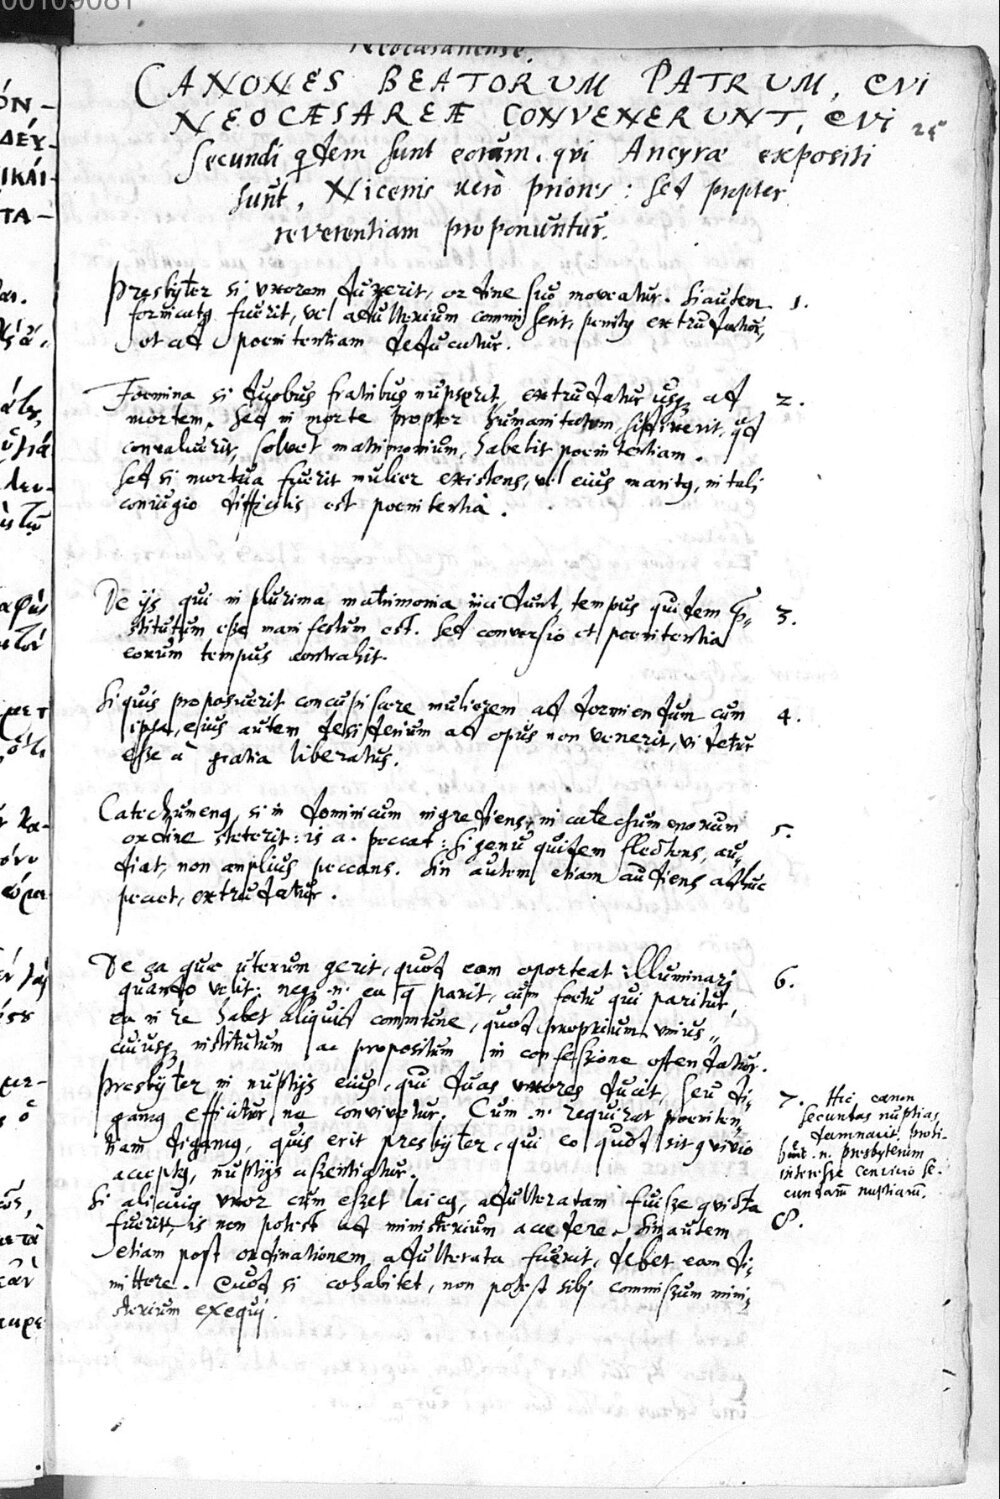 00109081
Neocæsariense.
CANONES BEATORUM PATRUM, QVI
NEOCÆSAREÆ CONVENERUNT, QVI
25
secundi q̄dem sunt eorum, qvi Ancyræ expositi
sunt, Nicenis verò priores: sed propter
reverentiam proponuntur.
Presbyter si uxorem duxerit, ordine suo moveatur. Si autem
1.
fornicatꝰ fuerit, vel adulterium commiserit, penitꝰ extrudatur,
et ad poenitentiam deducatur.
Foemina si duobus fratribus nupserit, extrudatur usq; ad
2.
mortem. Sed in morte propter humanitatem, si dixerit, qd
convaluerit, solvet matrimonium, habebit poenitentiam.
Sed si mortua fuerit mulier existens, vel eius maritꝰ, in tali
coniugio difficilis est poenitentia.
De ijs qui in plurima matrimonia incidunt, tempus quidem
3.
stitutum esse manifestum est. Sed conversio et poenitentia
eorum tempus contrahit.
Si quis proposuerit concupiscere mulierem ad dormiendum cum
4.
ipsa, ejus autem desiderium ad opus non venerit, videtur
esse à gratia liberatus.
Catechumenꝰ, si in dominicum ingrediens, in catechumenorum
5.
ordine steterit: is a. peccat: Si genu quidem flectens, au-
diat, non amplius peccans. Sin autem etiam audiens adhuc
peccet, extrudatur.
De ea que uterum gerit, quod eam oporteat illuminari
6.
quando velit: neq; n. ea q̄ parit, cum foetu qui paritur,
ea in re habet aliquid commune, quod proprium unius-
cuiusq; institutum ac propositum in confessione ostendatur.
Presbyter in nuptijs eius, qui duas uxores ducit, seu di-
7.
gamꝰ efficitur ne convivetur. Cum n. requirat poeniten-
tiam digamꝰ, quis erit presbyter, qui eo quod sit
acceptꝰ, nuptijs assentiatur.
Hic canon
secundas nuptias
damnavit, prohi-
buit n. presbyterum
interesse convivio se-
cundarū nuptiarū.
Si alicuiꝰ uxor cum esset laicꝰ, adulteratam fuisse
8.
fuerit, is non potest ad ministerium accedere. Sin autem
etiam post ordinationem adulterata fuerit, debet eam di-
mittere. Quod si cohabitet, non potest sibi commissum mini-
sterium exequi.